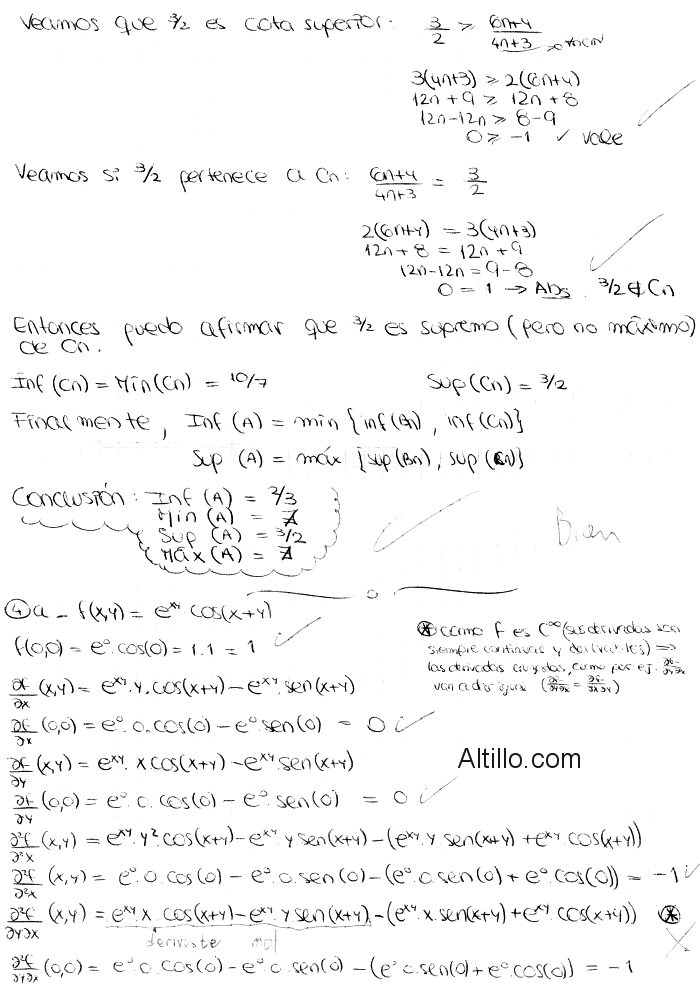 Veamos que 3/2 es cota superior: 3/2 ≥ (6n+4)/(4n+3)
3(4n+3) ≥ 2(6n+4)
12n + 9 ≥ 12n + 8
12n - 12n ≥ 8 - 9
0 ≥ -1 ✓ Vale
Veamos si 3/2 pertenece a Cn: (6n+4)/(4n+3) = 3/2
2(6n+4) = 3(4n+3)
12n + 8 = 12n + 9
12n - 12n = 9 - 8
0 = 1 → Abs. 3/2 ∉ Cn
Entonces puedo afirmar que 3/2 es supremo (pero no máximo)
de Cn.
Inf (Cn) = Min (Cn) = 10/7 Sup (Cn) = 3/2
Finalmente, Inf (A) = min {inf (Bn), inf (Cn)}
Sup (A) = máx {sup (Bn), sup (Cn)}
Conclusión: Inf (A) = 2/3
Min (A) = ∄
Sup (A) = 3/2
Máx (A) = ∄
Bien
④ a - f(x,y) = e^xy cos(x+y)
f(0,0) = e^0 . cos(0) = 1.1 = 1
⊛ como f es C^∞ (sus derivadas son
siempre continuas y derivables) ⟹
las derivadas cruzadas, como por ej. ∂²f/∂y∂x
van a dar igual (∂²f/∂y∂x = ∂²f/∂x∂y)
∂f/∂x (x,y) = e^xy . y . cos(x+y) - e^xy . sen(x+y)
∂f/∂x (0,0) = e^0 . 0 . cos(0) - e^0 . sen(0) = 0
∂f/∂y (x,y) = e^xy . x cos(x+y) - e^xy . sen(x+y)
Altillo.com
∂f/∂y (0,0) = e^0 . 0 . cos(0) - e^0 . sen(0) = 0
∂²f/∂²x (x,y) = e^xy . y² . cos(x+y) - e^xy . y sen(x+y) - (e^xy . y . sen(x+y) + e^xy . cos(x+y))
∂²f/∂²x (x,y) = e^0 . 0 . cos(0) - e^0 . 0 . sen(0) - (e^0 . 0 . sen(0) + e^0 . cos(0)) = -1
∂²f/∂y∂x (x,y) = e^xy x . cos(x+y) - e^xy . y sen(x+y) - (e^xy . x . sen(x+y) + e^xy . cos(x+y)) ⊛
derivaste mal
∂²f/∂y∂x (0,0) = e^0 . 0 . cos(0) - e^0 . 0 sen(0) - (e^0 . 0 . sen(0) + e^0 . cos(0)) = -1